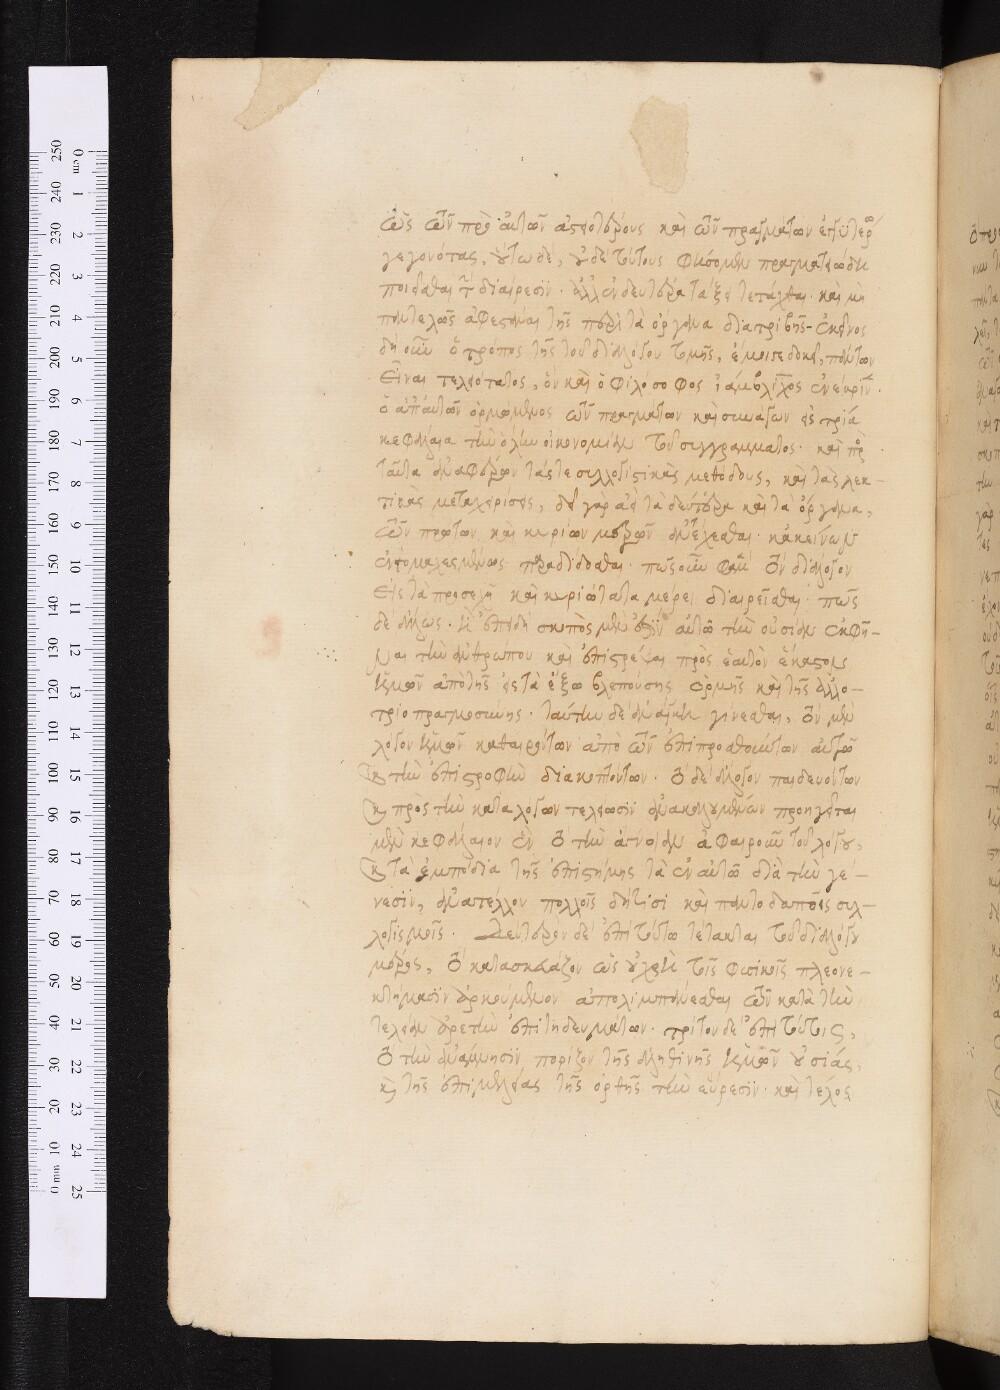 ὡς τῶν πρὸ αὐτῶν ἀπείρους καὶ τῶν πραγμάτων ἐξωτέρω
γεγονότας. οὕτω δὲ, οὐδὲ τούτους φήσομεν πραγματειώδη
ποιεῖσθαι τὴν διαίρεσιν. ἀλλ' ἐν δευτέρᾳ τάξει τετάχθαι. καὶ μὴ
παντελῶς ἀφεστάναι τῆς περὶ τὰ ὄργανα διατριβῆς. ἐκεῖνος
δὴ οὖν ὁ τρόπος τῆς τοῦ διαλόγου τομῆς, ἔμοιγε δοκεῖ, πάντων
εἶναι τελεώτατος, ὃν καὶ ὁ φιλόσοφος ἰάμβλιχος ἐνέκρινεν.
ὁ ἀπ' αὐτῶν ὁρμώμενος τῶν πραγμάτων καὶ συνάγων εἰς τρία
κεφάλαια τὴν ὅλην οἰκονομίαν τοῦ συγγράμματος. καὶ πρὸς
ταῦτα ἀναφέρων τάς τε συλλογιστικὰς μεθόδους, καὶ τὰς λεκ-
τικὰς μεταχειρίσεις, δεῖ γὰρ ἀεὶ τὰ δεύτερα καὶ τὰ ὄργανα,
τῶν πρώτων καὶ κυρίων μερῶν ἀντέχεσθαι. κἀκείνων
παραδίδοσθαι. πῶς οὖν φαμὲν τὸν διάλογον
εἰς τὰ προσεχῆ καὶ κυριώτατα μέρει διαιρεῖσθαι. πῶς
δὲ ἄλλως. ἢ ἐπειδὴ σκοπὸς μέν ἐστιν αὐτῷ τὴν οὐσίαν ἐκφῆ-
ναι τὴν ἀνθρώπου καὶ ἐπιστρέψαι πρὸς ἑαυτὸν ἕκαστον
ἡμῶν ἀπὸ τῆς εἰς τὰ ἔξω βλεπούσης ὁρμῆς καὶ τῆς ἀλλο-
τριοπραγμοσύνης. ταύτην δὲ ἀνάγκη γίνεσθαι, τὸν μὲν
λόγον ἡμῶν καθαιρόντων ἀπὸ τῶν ἐπιπροσθούντων αὐτῷ
κ τὴν ἐπιστροφὴν διακοπτόντων. τὸ δὲ ἄλογον παιδευόντων
κ πρὸς τὴν κατὰ λόγων τελείωσιν προηγεῖται
μὲν κεφάλαιον ἓν τὸ τὴν ἄγνοιαν ἀφαιροῦν τοῦ λόγου,
κ τὰ ἐμπόδια τῆς ἐπιστήμης τὰ ἐν αὐτῷ διὰ τὴν γέ-
νεσιν, ἀναστέλλον πολλοῖς δή τισι καὶ παντοδαποῖς συλ-
λογισμοῖς. Δεύτερον δὲ ἐπὶ τούτῳ τέτακται τοῦ διαλόγου
μέρος, τὸ κατασκευάζον ὡς οὐ χρὴ τοῖς φυσικοῖς πλεονε-
κτήμασιν ἀρκούμενον ἀπολιμπάνεσθαι τῶν κατὰ τὴν
τελείαν ἀρετὴν ἐπιτηδευμάτων. τρίτον δὲ ἐπὶ τούτοις,
τὸ τὴν ἀνάμνησιν πορίζον τῆς ἀληθινῆς ἡμῶν οὐσίας,
κ τῆς ἐπιμελείας τῆς ὀρθῆς τὴν εὕρεσιν. καὶ τέλος